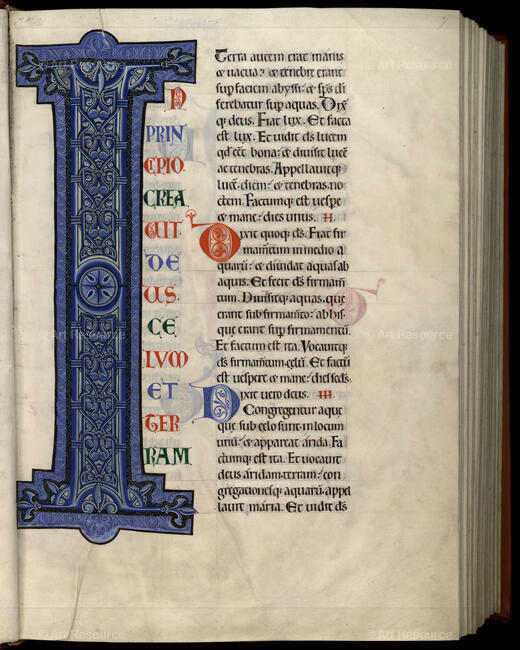 I
N
PRIN
CIPIO
CREA
UIT
DE
US
CE
LUM
ET
TER
RAM
Terra autem erat inanis
& uacua: & tenebrę erant
sup faciem abyssi: & sps di
ferebatur sup aquas. Dixitq;
q; deus. Fiat lux. Et facta
est lux. Et uidit ds lucem
qd eēt bona: & diuisit lucē
ac tenebras. Appellauitq;
lucē. diem: & tenebras. no
ctem. Factumq; est uespe
& mane: dies unus. II.
Dixit quoq; ds. Fiat fir
mam̄tum in medio a
quarū: & diuidat aquas ab
aquis. Et fecit ds firmam̄
tum. Diuisitq; aquas. que
erant sub firmam̄to: ab his
que erant sup firmamentū.
Et factum est ita. Vocauitq;
ds firmam̄tum. cęlū. Et factū
est uespere & mane: dies scds.
Dixit uero deus. III.
Congregentur aque
que sub celo sunt in locum
unū: & appareat arida. Fa
ctumq; est ita. Et uocauit
deus aridam. terram: con
gregationesq; aquarū appel
lauit maria. Et uidit ds
Art Resource